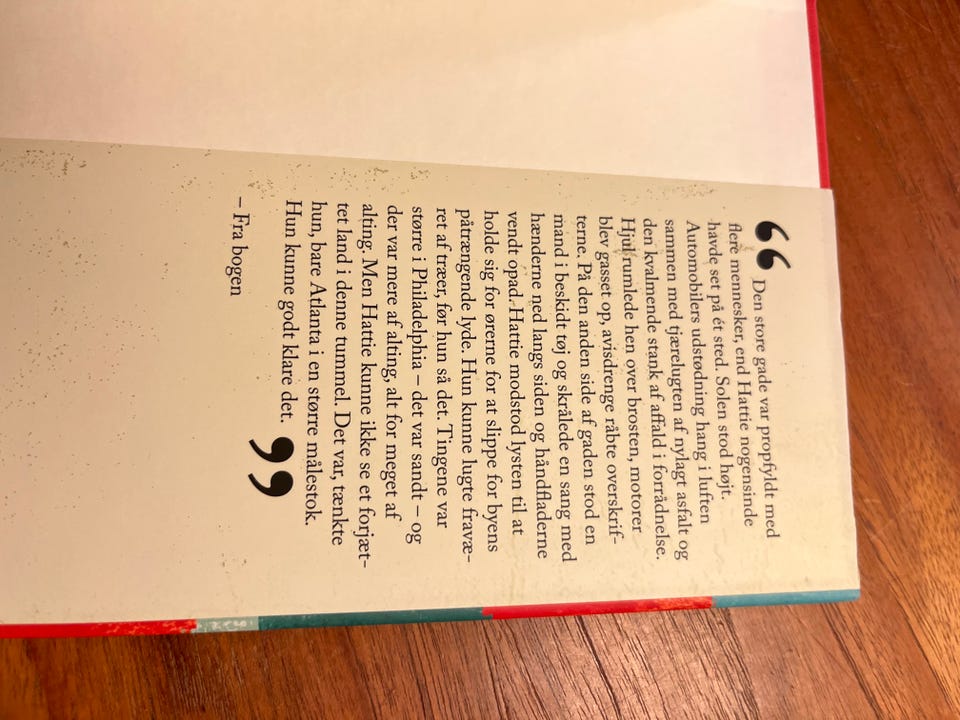 “ Den store gade var propfyldt med
flere mennesker, end Hattie nogensinde
havde set på ét sted. Solen stod højt.
Automobilers udstødning hang i luften
sammen med tjærelugten af nylagt asfalt og
den kvalmende stank af affald i forrådnelse.
Hjul rumlede hen over brosten, motorer
blev gasset op, avisdrenge råbte overskrif-
terne. På den anden side af gaden stod en
mand i beskidt tøj og skrålede en sang med
hænderne ned langs siden og håndfladerne
vendt opad. Hattie modstod lysten til at
holde sig for ørerne for at slippe for byens
påtrængende lyde. Hun kunne lugte fravæ-
ret af træer, før hun så det. Tingene var
større i Philadelphia – det var sandt – og
der var mere af alting, alt for meget af
alting. Men Hattie kunne ikke se et forjæt-
tet land i denne tummel. Det var, tænkte
hun, bare Atlanta i en større målestok.
Hun kunne godt klare det. ”
– Fra bogen